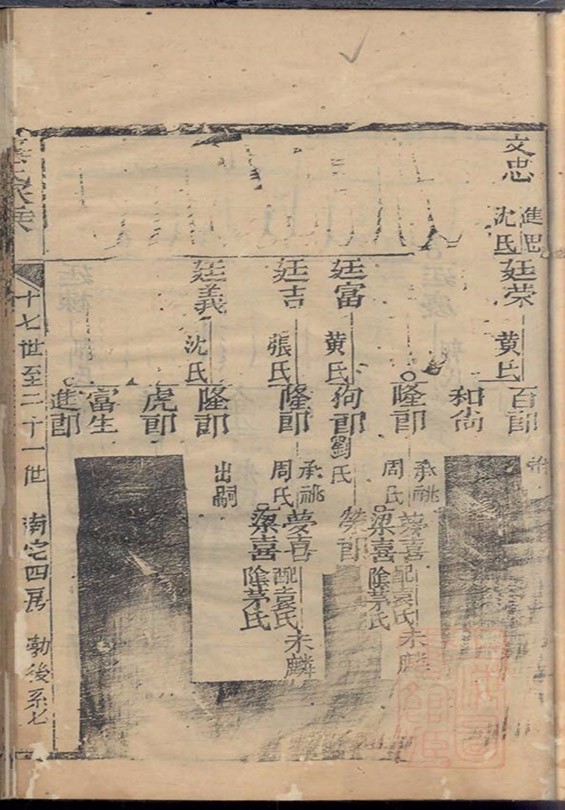 文忠
進思
沈氏
廷荣
黄氏
百郎
和尚
隆郎
承祧
周氏
夢喜
配袁氏
未麟
梁喜
陰茅氏
廷富
黄氏
狗郎
劉氏
廷吉
張氏
隆郎
承祧
周氏
夢喜
配袁氏
未麟
梁喜
陰茅氏
廷義
沈氏
隆郎
出嗣
虎郎
富生
進郎
十七世至二十一世
南宅四房
勃後系七